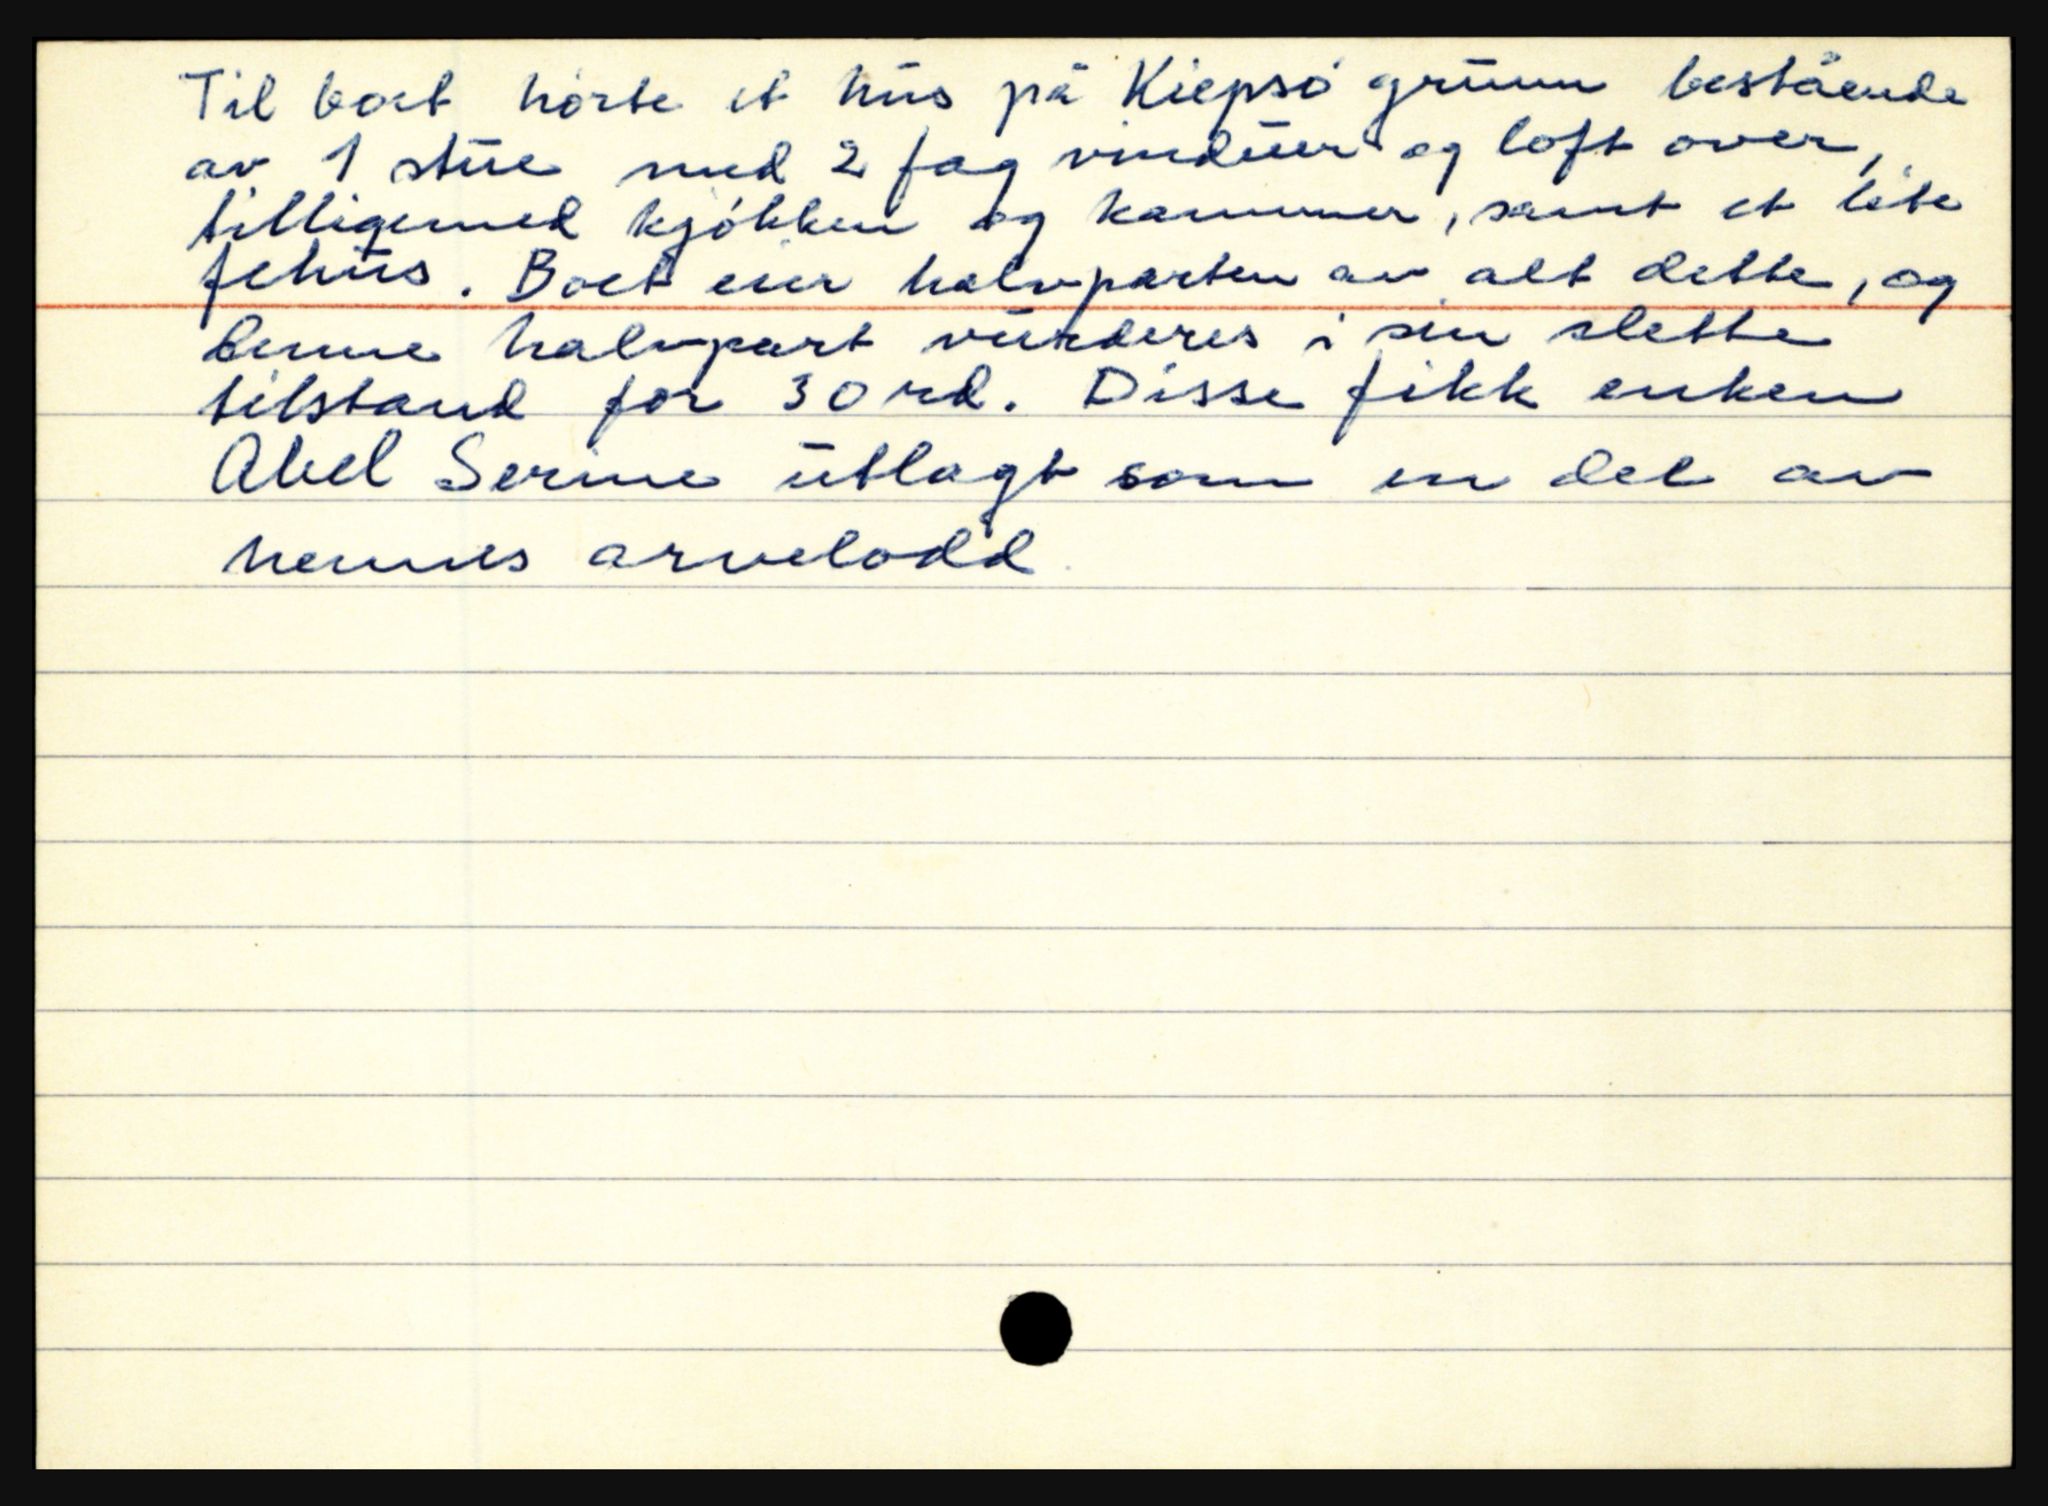 Til boet hørte et hus på Kiepsø grunn bestående
av 1 stue med 2 fag vinduer og loft over,
tilligemed kjøkken og kammer, samt et lite
fehus. Boet eier halvparten av alt dette, og
denne halvpart vurderes i sin slette
tilstand for 30 rd. Disse fikk enken
Abel Serine utlagt som en del av
hennes arvelodd.